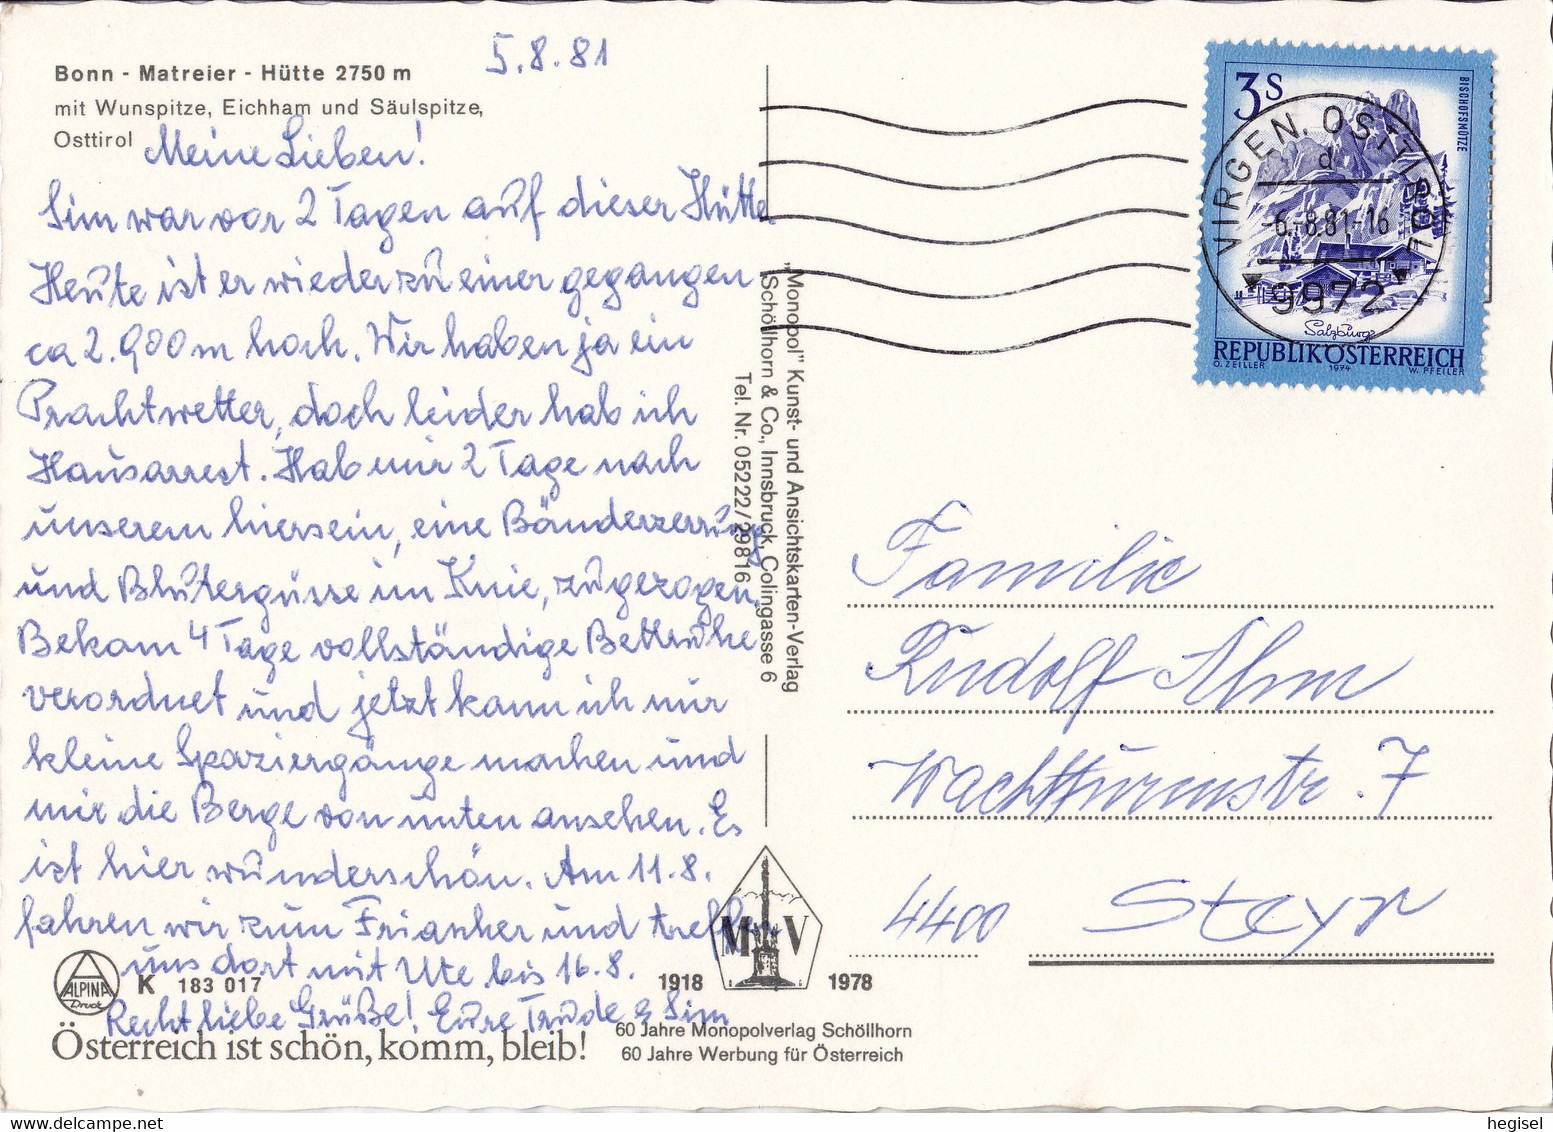 5.8.81
Bonn - Matreier - Hütte 2750 m
mit Wunspitze, Eichham und Säulspitze,
Osttirol
Meine Lieben!
Sim war vor 2 Tagen auf dieser Hütte.
Heute ist er wieder zu einer gegangen
ca 2.900 m hoch. Wir haben ja ein
Prachtwetter, doch leider hab ich
Hausarrest. Hab mir 2 Tage nach
unserem hiersein, eine Bänderzerrung
und Blutergüsse im Knie, zugezogen.
Bekam 4 Tage vollständige Bettruhe
verordnet und jetzt kann ich nur
kleine Spaziergänge machen und
mir die Berge von unten ansehen. Es
ist hier wunderschön. Am 11.8.
fahren wir zum Frianker und treffen
uns dort mit Ute bis 16.8.
Recht liebe Grüße! Eure Trude & Sim
ALPINA
Druck
K 183 017
Österreich ist schön, komm, bleib!
„Monopol" Kunst- und Ansichtskarten-Verlag
Schöllhorn & Co., Innsbruck, Colingasse 6
Tel. Nr. 05222/29816
1918 M V 1978
60 Jahre Monopolverlag Schöllhorn
60 Jahre Werbung für Österreich
3 S
BISCHOFSMÜTZE
Salzburg
REPUBLIK ÖSTERREICH
O. ZEILLER 1974 W. PFEILER
VIRGEN, OSTTIROL
d
-6.-8.81-16
9972
Familie
Rudolf Ahm
Wachtturmstr. 7
4400 Steyr
hegisel